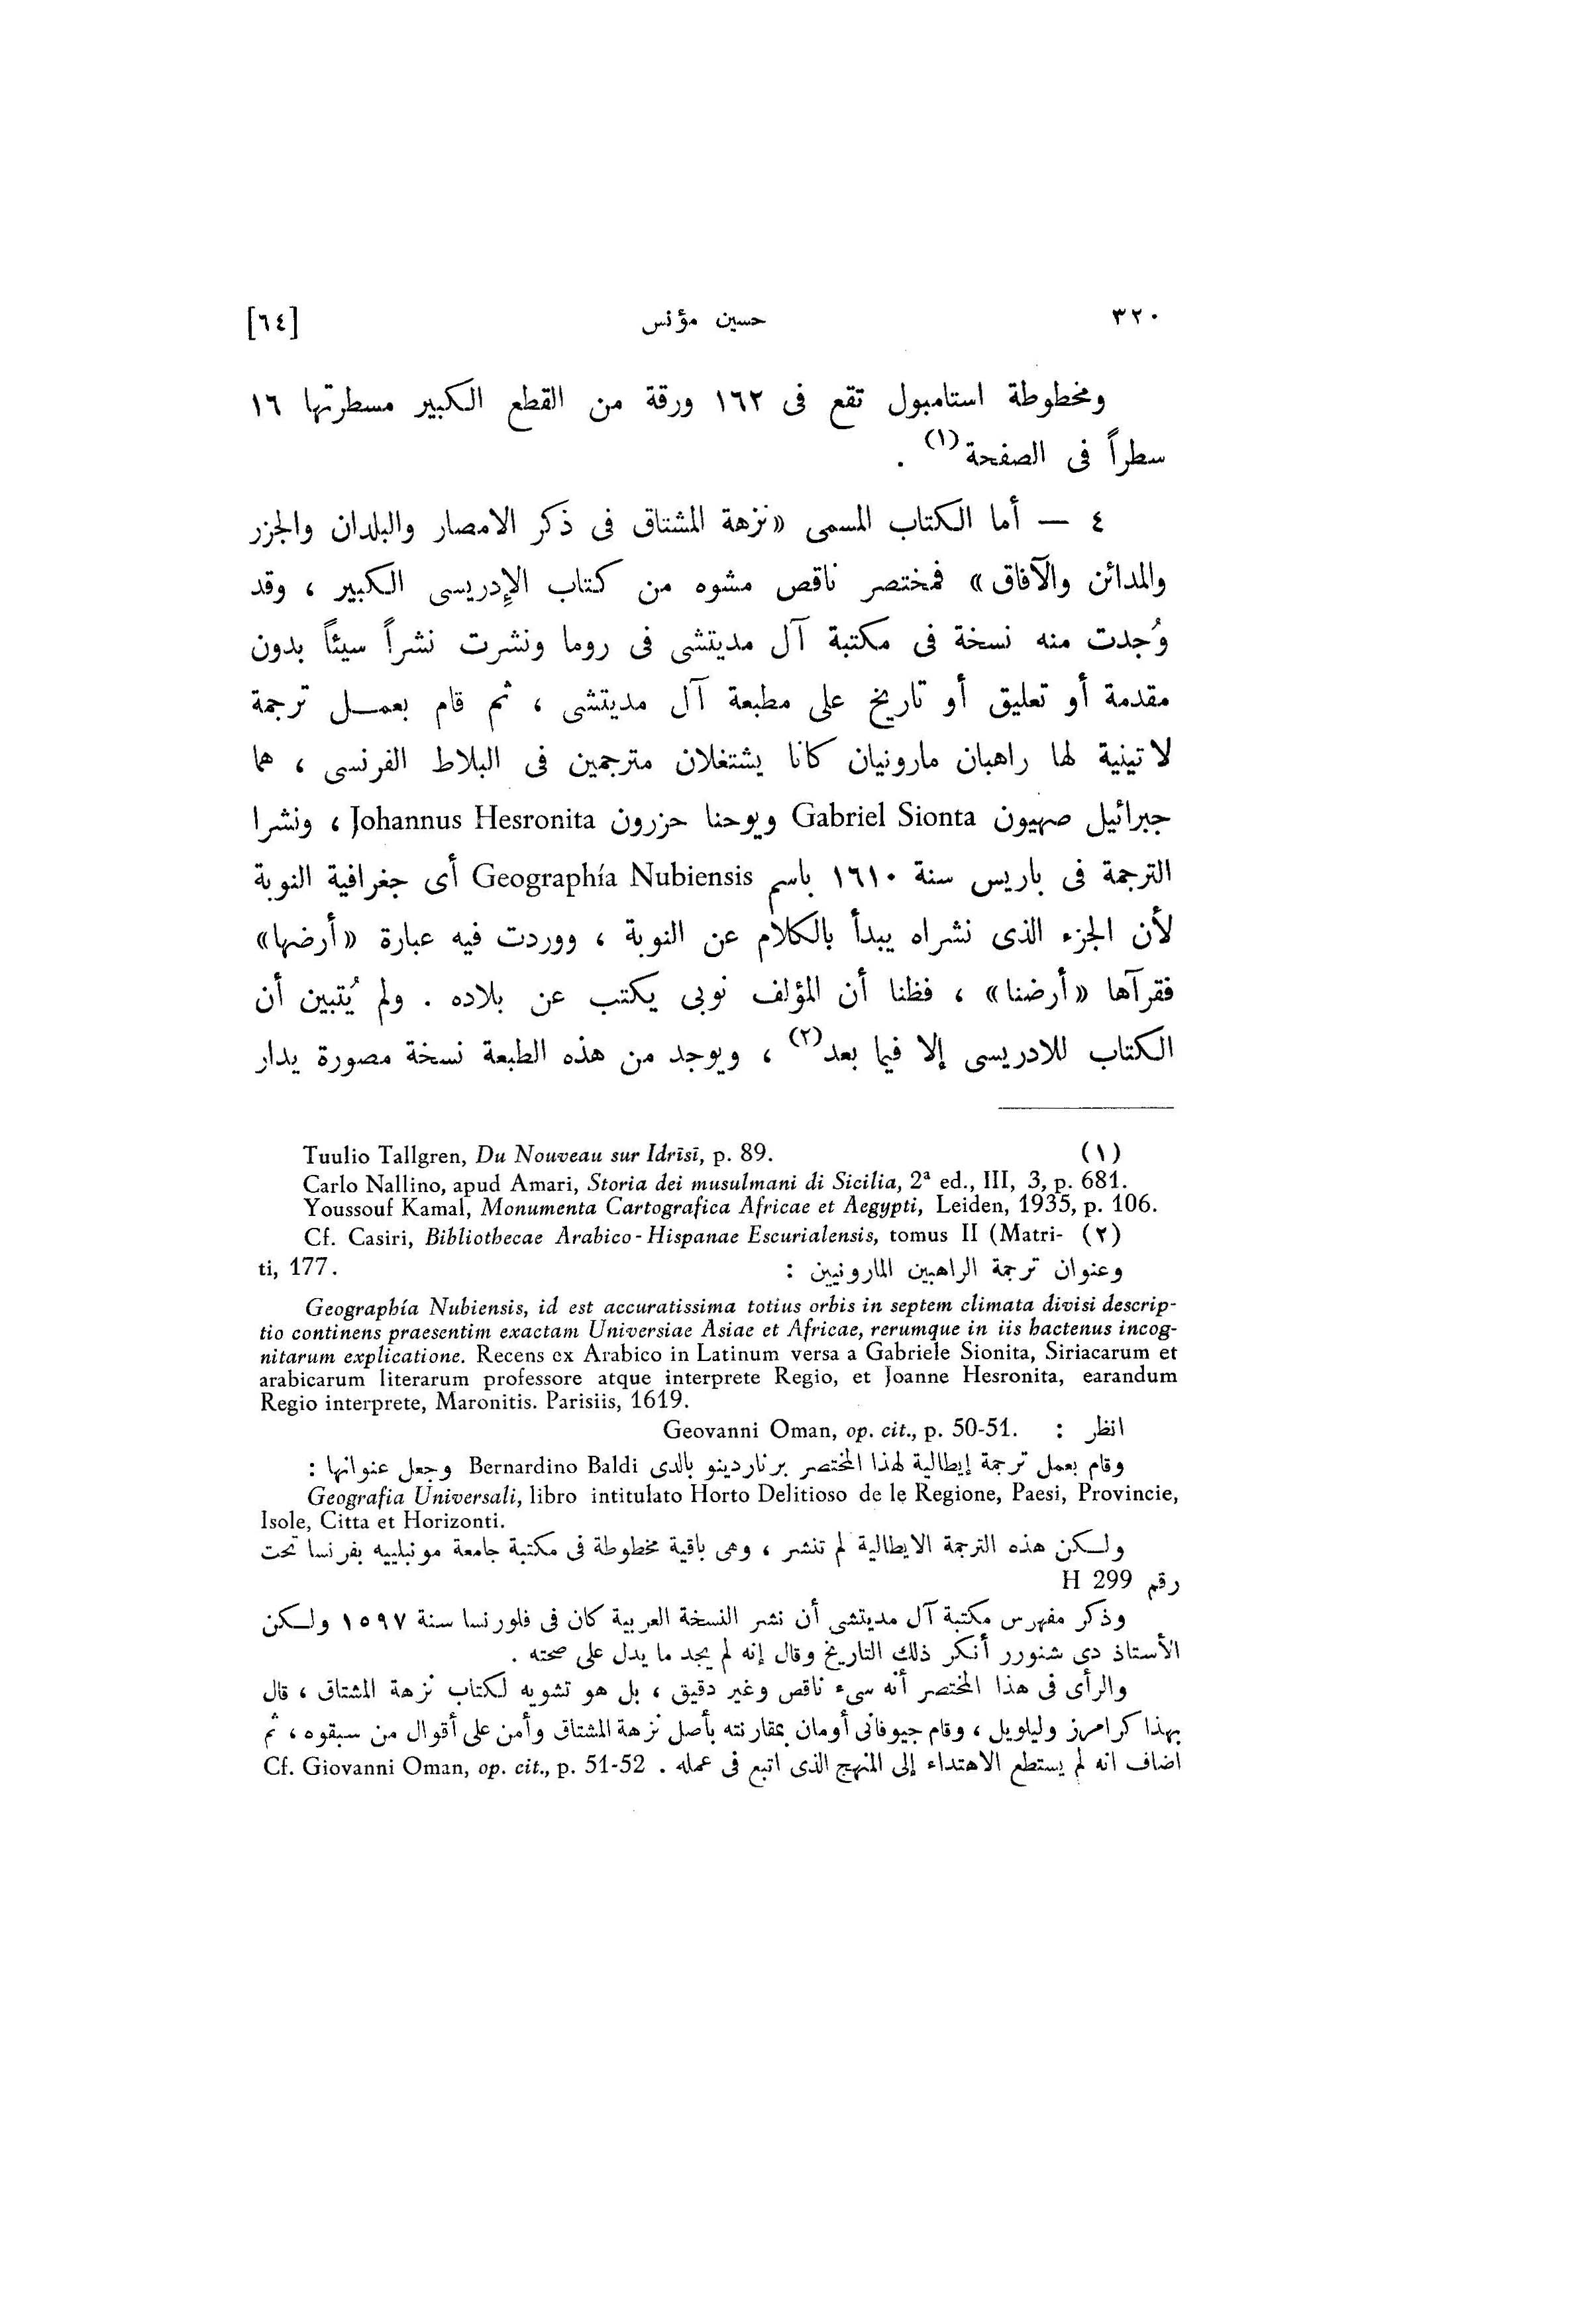 ٣٢٠ حسين مؤنس [٦٤]
ومخطوطة استامبول تقع فى ١٦٢ ورقة من القطع الكبير مسطرتها ١٦
سطراً فى الصفحة (١) .
٤ — أما الكتاب المسمى «نزهة المشتاق فى ذكر الامصار والبلدان والجزر
والمدائن والآفاق» فمختصر ناقص مشوه من كتاب الإدريسى الكبير ، وقد
وُجدت منه نسخة فى مكتبة آل مديتشى فى روما ونشرت نشراً سيئاً بدون
مقدمة أو تعليق أو تاريخ على مطبعة آل مديتشى ، ثم قام بعمل ترجمة
لاتينية لها راهبان مارونيان كانا يشتغلان مترجمين فى البلاط الفرنسى ، هما
جبرائيل صهيون Gabriel Sionta ويوحنا حزرون Johannus Hesronita ، ونشرا
الترجمة فى باريس سنة ١٦١٠ باسم Geographía Nubiensis أى جغرافية النوبة
لأن الجزء الذى نشراه يبدأ بالكلام عن النوبة ، ووردت فيه عبارة «أرضها»
فقرآها «أرضنا» ، فظنا أن المؤلف نوبى يكتب عن بلاده . ولم يُتبين أن
الكتاب للادريسى إلا فيما بعد (٢) ، ويوجد من هذه الطبعة نسخة مصورة يدار
(١) Tuulio Tallgren, Du Nouveau sur Idrīsī, p. 89.
Carlo Nallino, apud Amari, Storia dei musulmani di Sicilia, 2ª ed., III, 3, p. 681.
Youssouf Kamal, Monumenta Cartografica Africae et Aegypti, Leiden, 1935, p. 106.
(٢) Cf. Casiri, Bibliothecae Arabico-Hispanae Escurialensis, tomus II (Matri-
ti, 177. وعنوان ترجمة الراهبين المارونيين :
Geographía Nubiensis, id est accuratissima totius orbis in septem climata divisi descrip-
tio continens praesentim exactam Universiae Asiae et Africae, rerumque in iis hactenus incog-
nitarum explicatione. Recens ex Arabico in Latinum versa a Gabriele Sionita, Siriacarum et
arabicarum literarum professore atque interprete Regio, et Joanne Hesronita, earandum
Regio interprete, Maronitis. Parisiis, 1619.
انظر : Geovanni Oman, op. cit., p. 50-51.
وقام بعمل ترجمة إيطالية لهذا المختصر برناردينو بالدى Bernardino Baldi وجعل عنوانها :
Geografia Universali, libro intitulato Horto Delitioso de le Regione, Paesi, Provincie,
Isole, Citta et Horizonti.
ولكن هذه الترجمة الايطالية لم تنشر ، وهى باقية مخطوطة فى مكتبة جامعة مونبلييه بفرنسا تحت
رقم H 299
وذكر مفهرس مكتبة آل مديتشى أن نشر النسخة العربية كان فى فلورنسا سنة ١٥٩٧ ولكن
الأستاذ دى شنورر أنكر ذلك التاريخ وقال إنه لم يجد ما يدل على صحته .
والرأى فى هذا المختصر أنه سىء ناقص وغير دقيق ، بل هو تشويه لكتاب نزهة المشتاق ، قال
بهذا كرامرز وليلويل ، وقام جيوفانى أومان بمقارنته بأصل نزهة المشتاق وأمن على أقوال من سبقوه ، ثم
اضاف انه لم يستطع الاهتداء إلى المنهج الذى اتبع فى عمله . Cf. Giovanni Oman, op. cit., p. 51-52